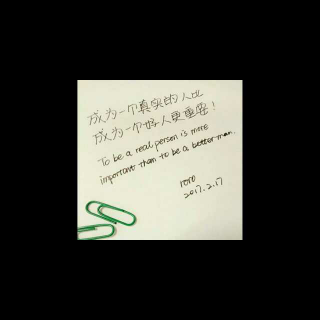 成为一个真实的人比
成为一个好人更重要！
To be a real person is more
important than to be a better man.
roro
2017.2.17